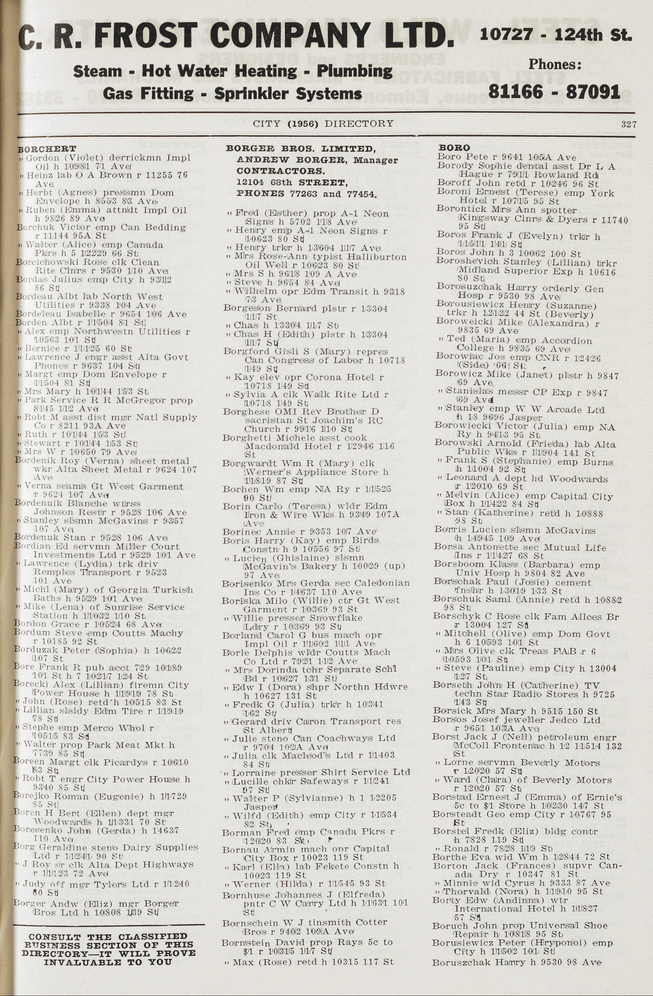 C. R. FROST COMPANY LTD.
10727 - 124th St.
Steam - Hot Water Heating - Plumbing
Gas Fitting - Sprinkler Systems
Phones:
81166 - 87091
CITY (1956) DIRECTORY
327
BORCHERT
" Gordon (Violet) derrickmn Impl
Oil h 10981 71 Ave
" Heinz lab O A Brown r 11255 76
Ave
" Herbt (Agnes) pressmn Dom
Envelope h 8553 83 Ave
" Ruben (Emma) attndt Impl Oil
h 9826 89 Ave
Borchuk Victor emp Can Bedding
r 11144 95A St
" Walter (Alice) emp Canada
Pkrs h 5 12229 66 St
Borcichowski Rose clk Clean
Rite Clnrs r 9530 110 Ave
Bordas Julius emp City h 9312
86 St
Bordeau Albt lab North West
Utilities r 9338 104 Ave
Bordeleau Isabelle r 9654 106 Ave
Borden Albt r 11504 81 St
" Alex emp Northwestn Utilities r
10563 101 St
" Bernice r 11125 60 St
" Lawrence J engr asst Alta Govt
Phones r 9637 104 St
" Margt emp Dom Envelope r
11504 81 St
" Mrs Mary h 10144 153 St
" Park Service R R McGregor prop
8145 112 Ave
" Robt M asst dist mgr Natl Supply
Co r 8211 93A Ave
" Ruth r 10144 153 St
" Stewart r 10144 153 St
" Mrs W r 10650 79 Ave
Bordenik Roy (Verna) sheet metal
wkr Alta Sheet Metal r 9624 107
Ave
" Verna seams Gt West Garment
r 9624 107 Ave
Bordenuik Blanche wtrss
Johnson Restr r 9528 106 Ave
" Stanley slsmn McGavins r 9357
107 Ave
Bordenuk Stan r 9528 106 Ave
Bordian Ed servmn Miller Court
Investments Ltd r 9529 101 Ave
" Lawrence (Lydia) trk driv
Remples Transport r 9523
101 Ave
" Michl (Mary) of Georgia Turkish
Baths h 9529 101 Ave
" Mike (Lena) of Sunrise Service
Station h 11032 110 St
Bordon Grace r 10524 68 Ave
Bordum Steve emp Coutts Machy
r 10185 92 St
Borduzak Peter (Sophia) h 10622
107 St
Bore Frank R pub acct 729 10189
101 St h 7 10217 124 St
Borecki Alex (Lillian) firemn City
Power House h 11919 78 St
" John (Rose) retd h 10515 83 St
" Lillian slsldy Edm Tire r 11919
78 St
" Stephe emp Merco Whol r
10515 83 St
" Walter prop Park Meat Mkt h
7739 85 St
Boreen Margt clk Picardys r 10610
83 St
" Robt T engr City Power House h
9340 85 St
Borejko Roman (Eugenie) h 11729
85 St
Boren H Bert (Ellen) dept mgr
Woodwards h 11331 70 St
Boresenko John (Gerda) h 14637
110 Ave
Borg Geraldine steno Dairy Supplies
Ltd r 11241 90 St
" J Roy sr clk Alta Dept Highways
r 11123 72 Ave
" Judy off mgr Tylers Ltd r 11240
80 St
Borger Andw (Eliz) mgr Borger
Bros Ltd h 10808 139 St
CONSULT THE CLASSIFIED
BUSINESS SECTION OF THIS
DIRECTORY—IT WILL PROVE
INVALUABLE TO YOU
BORGER BROS. LIMITED,
ANDREW BORGER, Manager
CONTRACTORS.
12104 68th STREET,
PHONES 77263 and 77454.
" Fred (Esther) prop A-1 Neon
Signs h 5702 118 Ave
" Henry emp A-1 Neon Signs r
10623 80 St
" Henry trkr h 13604 117 Ave
" Mrs Rose-Ann typist Halliburton
Oil Well r 10623 80 St
" Mrs S h 9618 109 A Ave
" Steve h 9654 84 Ave
" Wilhelm opr Edm Transit h 9318
73 Ave
Borgeson Bernard plstr r 13304
117 St
" Chas h 13304 117 St
" Chas H (Edith) plstr h 13304
117 St
Borgford Gisli S (Mary) repres
Can Congress of Labor h 10718
149 St
" Kay elev opr Corona Hotel r
10718 149 St
" Sylvia A clk Walk Rite Ltd r
10718 149 St
Borghese OMI Rev Brother D
sacristan St Joachim's RC
Church r 9916 110 St
Borghetti Michele asst cook
Macdonald Hotel r 12946 116
St
Borgwardt Wm R (Mary) clk
Werner's Appliance Store h
11819 87 St
Borhen Wm emp NA Ry r 11525
90 St
Borin Carlo (Teresa) wldr Edm
Iron & Wire Wks h 9349 107A
Ave
Borinec Annie r 9353 107 Ave
Boris Harry (Kay) emp Birds
Constn h 9 10556 97 St
" Lucien (Ghislaine) slsmn
McGavin's Bakery h 10029 (up)
97 Ave
Borisenko Mrs Gerda sec Caledonian
Ins Co r 14637 110 Ave
Boriska Milo (Willie) ctr Gt West
Garment r 10369 93 St
" Willie presser Snowflake
Ldry r 10369 93 St
Borland Carol G bus mach opr
Impl Oil r 11602 111 Ave
Borle Delphis wldr Coutts Mach
Co Ltd r 7921 112 Ave
" Mrs Dorinda tchr Separate Schl
Bd r 10627 131 St
" Edw I (Dora) shpr Northn Hdwre
h 10627 131 St
" Fredk G (Julia) trkr h 10341
162 St
" Gerard driv Caron Transport res
St Albert
" Julie steno Can Coachways Ltd
r 9704 102A Ave
" Julia clk Macleod's Ltd r 11403
84 St
" Lorraine presser Shirt Service Ltd
" Lucille chkr Safeways r 11241
97 St
" Walter P (Sylvianne) h 1 12205
Jasper
" Wilfd (Edith) emp City r 11534
82 St
Borman Fred emp Canada Pkrs r
12020 83 St
Bornau Armin mach opr Capital
City Box r 10023 119 St
" Karl (Ella) lab Fekete Constn h
10023 119 St
" Werner (Hilda) r 11545 93 St
Bornhuse Johannes J (Elfreda)
pntr C W Carry Ltd h 11631 101
St
Bornschein W J tinsmith Cotter
Bros r 9402 106A Ave
Bornstein David prop Rays 5c to
$1 r 10315 117 St
" Max (Rose) retd h 10315 117 St
BORO
Boro Pete r 9641 105A Ave
Borody Sophie dental asst Dr L A
Hague r 7911 Rowland Rd
Boroff John retd r 10246 96 St
Boroni Ernest (Terese) emp York
Hotel r 10715 95 St
Borontick Mrs Ann spotter
Kingsway Clnrs & Dyers r 11740
95 St
Boros Frank J (Evelyn) trkr h
11511 141 St
Boros John h 3 10062 100 St
Boroshevich Stanley (Lillian) trkr
Midland Superior Exp h 10616
80 St
Borosuzchak Harry orderly Gen
Hosp r 9530 98 Ave
Borousiewicz Henry (Suzanne)
trkr h 12122 44 St (Beverly)
Boroweicki Mike (Alexandra) r
9835 69 Ave
" Ted (Maria) emp Accordion
College h 9835 69 Ave
Borowiac Jos emp CNR r 12426
(Side) 66 St
Borowicz Mike (Janet) plstr h 9847
69 Ave
" Stanislas messr CP Exp r 9847
69 Ave
" Stanley emp W W Arcade Ltd
h 18 9696 Jasper
Borowiecki Victor (Julia) emp NA
Ry h 9413 95 St
Borowski Arnold (Frieda) lab Alta
Public Wks r 11904 141 St
" Frank S (Stephanie) emp Burns
h 11004 92 St
" Leonard A dept hd Woodwards
r 12010 69 St
" Melvin (Alice) emp Capital City
Box h 11422 84 St
" Stan (Katherine) retd h 10888
98 St
Borris Lucien slsmn McGavins
h 14945 109 Ave
Borsa Antonette sec Mutual Life
Ins r 11427 68 St
Borsboom Klass (Barbara) emp
Univ Hosp h 9804 82 Ave
Borschak Paul (Josie) cement
fnshr h 13019 133 St
Borschuk Saml (Annie) retd h 10882
98 St
Borschyk C Rose clk Fam Allces Br
r 13004 127 St
" Mitchell (Olive) emp Dom Govt
h 6 10593 101 St
" Mrs Olive clk Treas FAB r 6
10593 101 St
" Steve (Pauline) emp City h 13004
127 St
Borseth John H (Catherine) TV
techn Star Radio Stores h 9725
143 St
Borsick Mrs Mary h 9515 150 St
Borsos Josef jeweller Jedco Ltd
r 9651 103A Ave
Borst Jack J (Nell) petroleum engr
McColl Frontenac h 12 11514 132
St
" Lorne servmn Beverly Motors
r 12020 57 St
" Ward (Clara) of Beverly Motors
r 12020 57 St
Borstad Ernest J (Emma) of Ernie's
5c to $1 Store h 10230 147 St
Borsteadt Geo emp City r 10767 95
St
Borstel Fredk (Eliz) bldg contr
h 7828 119 St
" Ronald r 7828 119 St
Borthe Eva wid Wm h 12844 72 St
Borton Jack (Frances) supvr Can-
ada Dry r 10347 81 St
" Minnie wid Cyrus h 9333 87 Ave
" Thorvald (Nora) h 11910 95 St
Borty Edw (Andinna) wtr
International Hotel h 11827
57 St
Boruch John prop Universal Shoe
Repair h 10818 95 St
Borusiewicz Peter (Hryponoi) emp
City h 11502 101 St
Boruszchak Harry h 9530 98 Ave